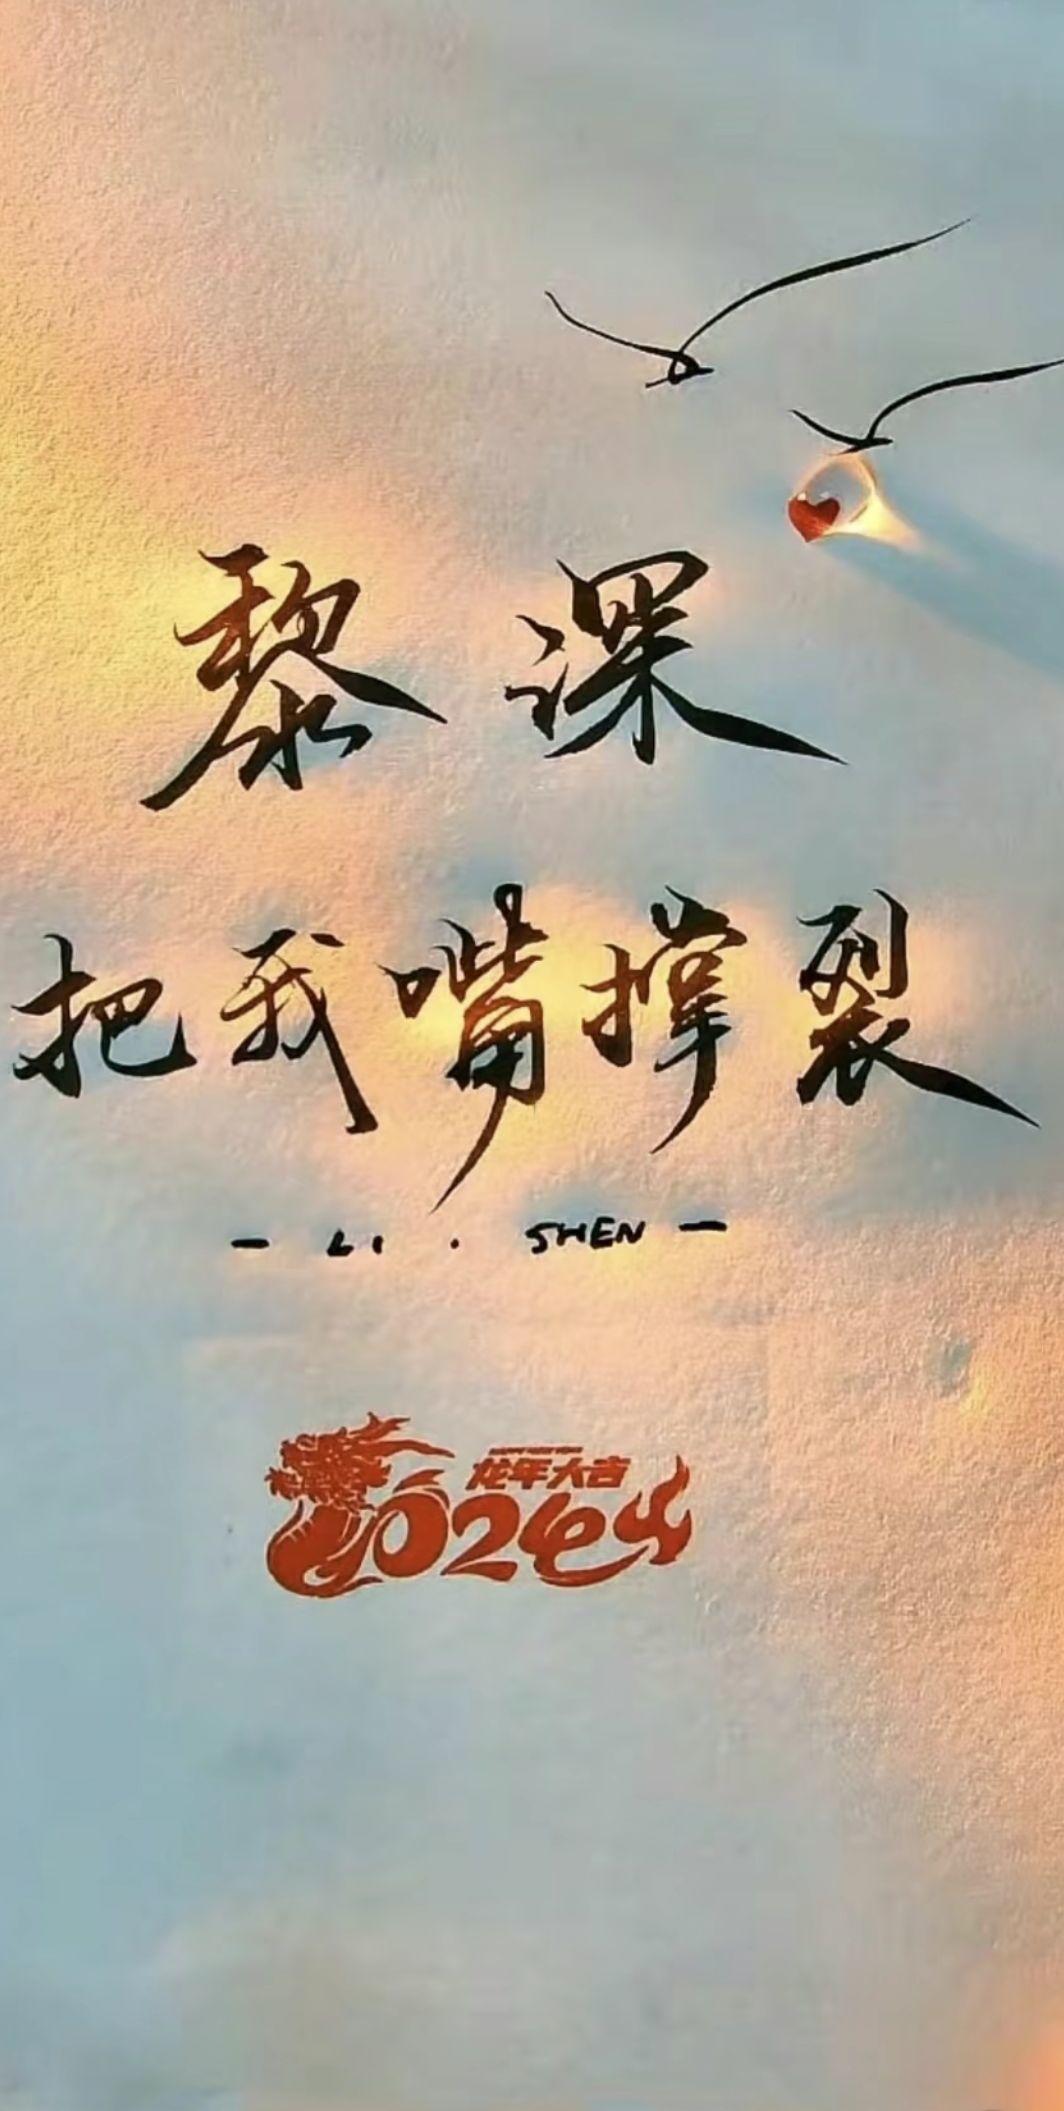 黎深
把我嘴撑裂
- LI · SHEN -
龙年大吉
2024